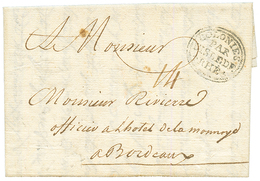 A Monsieur
COLONIES
PAR
ISLE DE
RHE
14
Monsieur Rivierre
officier a lhotel de la monnoye
a Bordeaux